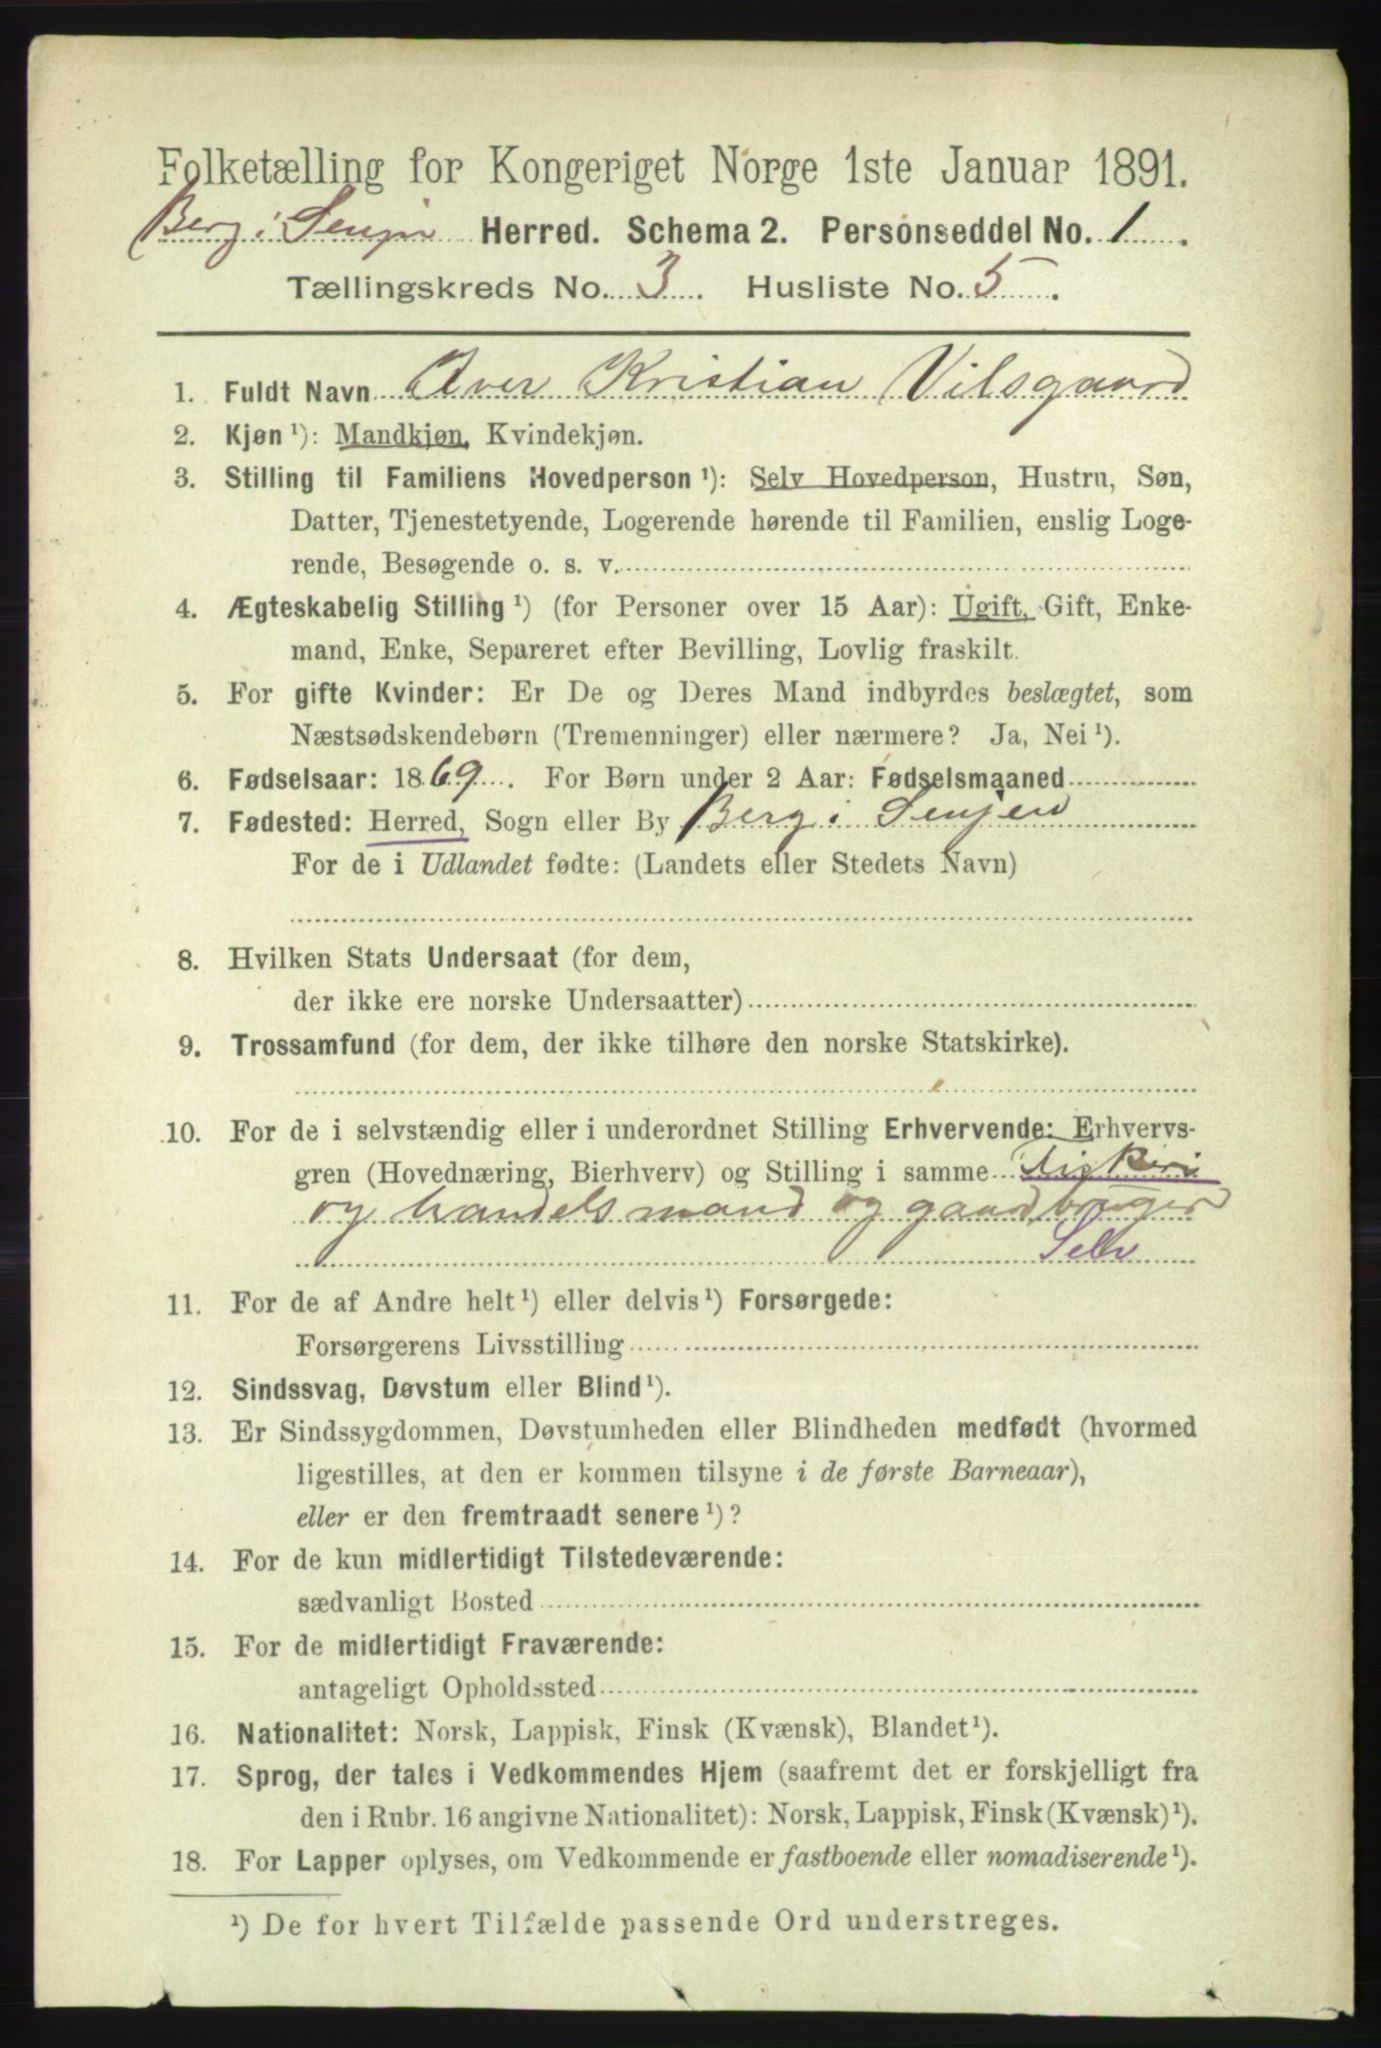 Folketælling for Kongeriget Norge 1ste Januar 1891.
Berg i Senjen Herred. Schema 2. Personseddel No. 1.
Tællingskreds No. 3. Husliste No. 5.
1. Fuldt Navn Iver Kristian Vilsgaard
2. Kjøn ¹): Mandkjøn, Kvindekjøn.
3. Stilling til Familiens Hovedperson ¹): Selv Hovedperson, Hustru, Søn,
Datter, Tjenestetyende, Logerende hørende til Familien, enslig Loge-
rende, Besøgende o. s. v.
4. Ægteskabelig Stilling ¹) (for Personer over 15 Aar): Ugift, Gift, Enke-
mand, Enke, Separeret efter Bevilling, Lovlig fraskilt.
5. For gifte Kvinder: Er De og Deres Mand indbyrdes beslægtet, som
Næstsødskendebørn (Tremenninger) eller nærmere? Ja, Nei ¹).
6. Fødselsaar: 1869. For Børn under 2 Aar: Fødselsmaaned
7. Fødested: Herred, Sogn eller By Berg i Senjen
For de i Udlandet fødte: (Landets eller Stedets Navn)
8. Hvilken Stats Undersaat (for dem,
der ikke ere norske Undersaatter)
9. Trossamfund (for dem, der ikke tilhøre den norske Statskirke).
10. For de i selvstændig eller i underordnet Stilling Erhvervende: Erhvervs-
gren (Hovednæring, Bierhverv) og Stilling i samme Fiskeri
og handelsmand og gaardbruger
Selv
11. For de af Andre helt ¹) eller delvis ¹) Forsørgede:
Forsørgerens Livsstilling
12. Sindssvag, Døvstum eller Blind ¹).
13. Er Sindssygdommen, Døvstumheden eller Blindheden medfødt (hvormed
ligestilles, at den er kommen tilsyne i de første Barneaar),
eller er den fremtraadt senere ¹)?
14. For de kun midlertidigt Tilstedeværende:
sædvanligt Bosted
15. For de midlertidigt Fraværende:
antageligt Opholdssted
16. Nationalitet: Norsk, Lappisk, Finsk (Kvænsk), Blandet ¹).
17. Sprog, der tales i Vedkommendes Hjem (saafremt det er forskjelligt fra
den i Rubr. 16 angivne Nationalitet): Norsk, Lappisk, Finsk (Kvænsk) ¹).
18. For Lapper oplyses, om Vedkommende er fastboende eller nomadiserende ¹).
¹) De for hvert Tilfælde passende Ord understreges.